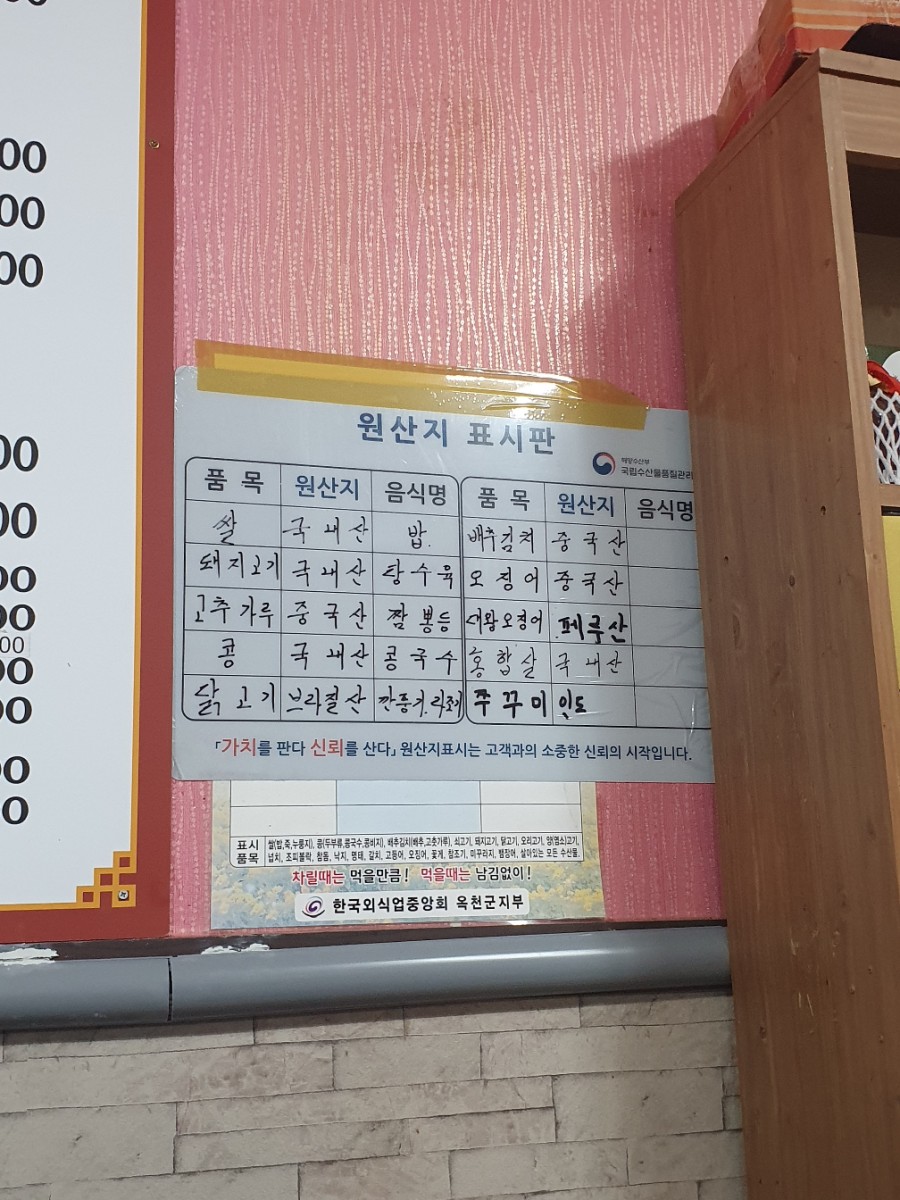 00
00
00
00
00
00
00
00
00
00
00
00
원산지 표시판
해양수산부
국립수산물품질관리
품목 원산지 음식명 품목 원산지 음식명
쌀 국내산 밥 배추김치 중국산
돼지고기 국내산 탕수육 오징어 중국산
고추가루 중국산 짬뽕등 대왕오징어 페루산
콩 국내산 콩국수 홍합살 국내산
닭고기 브라질산 깐풍기.라조기 쭈꾸미 인도
「가치를 판다 신뢰를 산다」 원산지표시는 고객과의 소중한 신뢰의 시작입니다.
표시 품목 쌀(밥,죽,누룽지), 콩(두부류,콩국수,콩비지), 배추김치(배추,고춧가루), 쇠고기, 돼지고기, 닭고기, 오리고기, 양(염소)고기,
넙치, 조피볼락, 참돔, 낙지, 명태, 갈치, 고등어, 오징어, 꽃게, 참조기, 미꾸라지, 뱀장어, 살아있는 모든 수산물,
차릴때는 먹을만큼! 먹을때는 남김없이!
한국외식업중앙회 옥천군지부